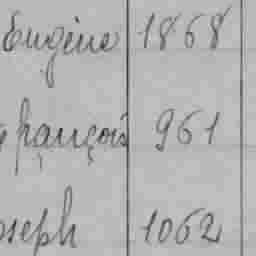 Eugène 1868
françois 961
oseph 1062